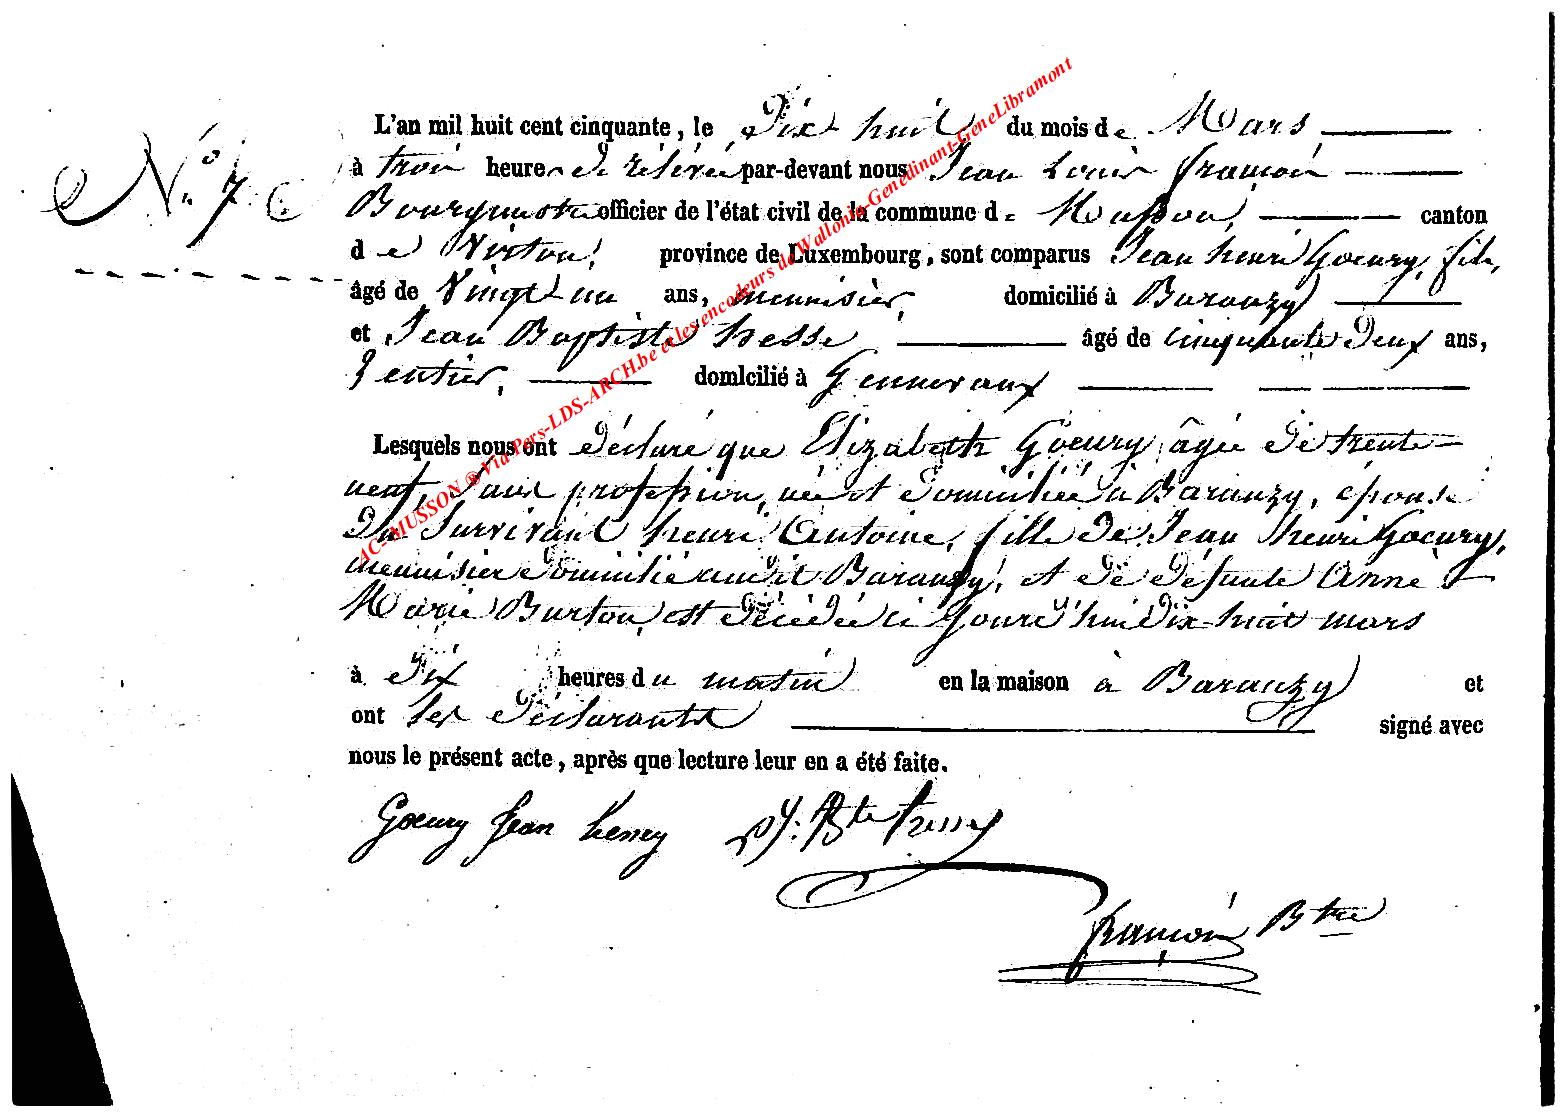 N.° 7
L'an mil huit cent cinquante, le Dix huit du mois de Mars,
à trois heures de rélévée par-devant nous Jean Louis françois
Bourgmestre officier de l'état civil de la commune de Musson, canton
de Virton, province de Luxembourg, sont comparus Jean henri Goeury, fils,
âgé de Vingt-un ans, menuisier, domicilié à Baranzy
et Jean Baptiste hesse âgé de cinquante Deux ans,
Rentier, domicilié à Gennevaux
Lesquels nous ont Déclaré que Elizabeth Goeury âgée de trente-
neuf, sans profession, née et domiciliée à Baranzy, épouse
du Survivant henri Antoine, fille de Jean henri Goeury,
menuisier domicilié audit Baranzy, et de défunte Anne
Marie Burton, est décédée ce Jourd'hui dix-huit mars
à dix heures du matin en la maison à Baranzy et
ont les déclarants signé avec
nous le présent acte, après que lecture leur en a été faite.
Goeury Jean henry J: Bte hesse
françois Btre
AC-MUSSON ® Via Pers-LDS-ARCH.be et les encodeurs de Wallonia-Genedinant-GeneLibramont